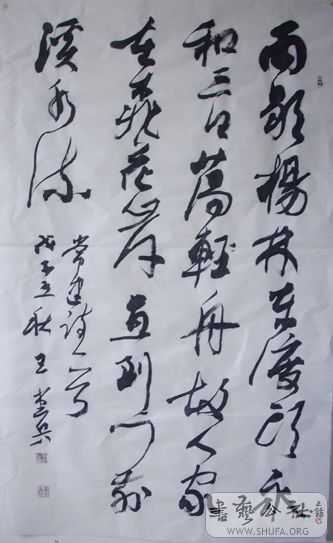 雨歇楊林東渡頭永
和三日蕩輕舟故人家
在桃花岸直到門前
溪水流
常建詩一首
戊子立秋 王
書藝公社
WWW.SHUFA.ORG